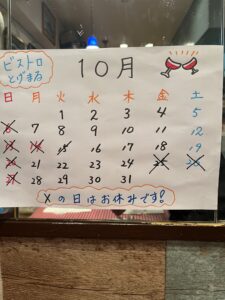 ビストロ
とげまる
10月
日 月 火 水 木 金 土
1 2 3 4 5
6 7 8 9 10 11 12
13 14 15 16 17 18 19
20 21 22 23 24 25 26
27 28 29 30 31
Xの日はお休みです!